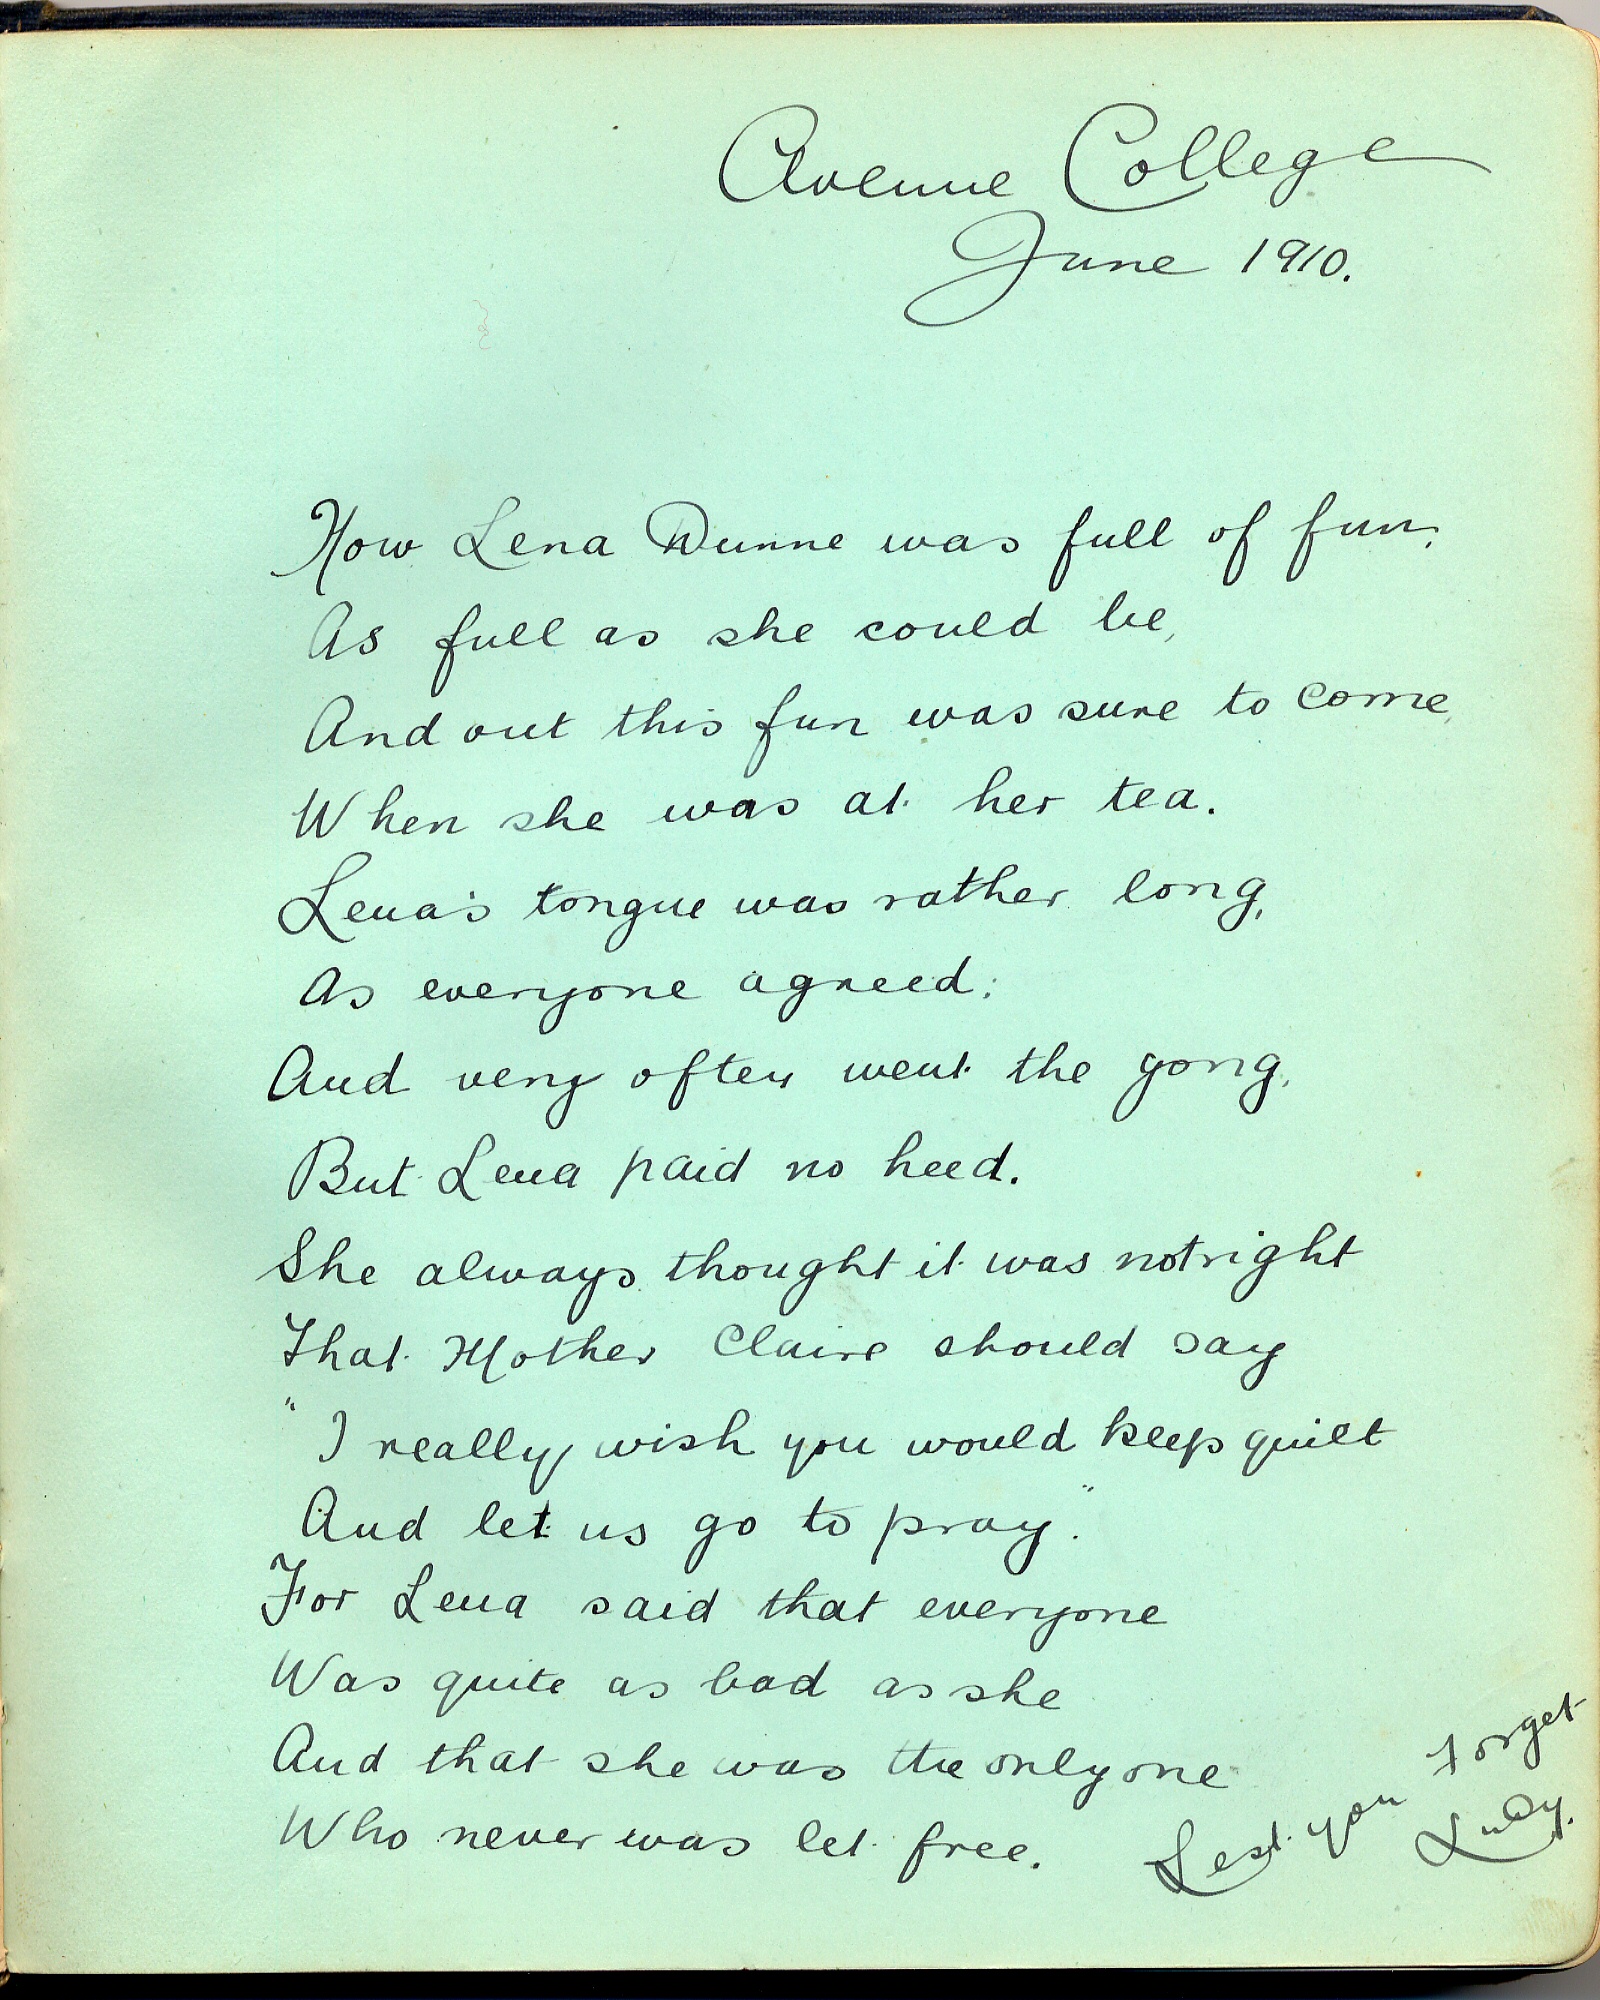 Avenue College
June 1910.
How Lena Dunne was full of fun,
As full as she could be,
And out this fun was sure to come,
When she was at her tea.
Lena's tongue was rather long,
As everyone agreed;
And very often went the gong,
But Lena paid no heed.
She always thought it was not right
That Mother Claire should say
"I really wish you would keep quiet
And let us go to pray."
For Lena said that everyone
Was quite as bad as she
And that she was the only one
Who never was let free.
Lest you forget